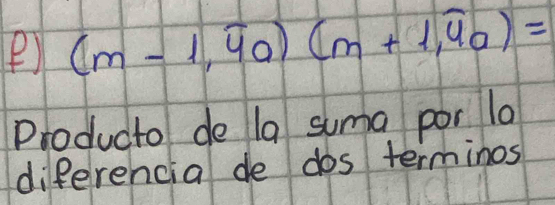 f) (m - 1,4̄a) (m + 1,4̄a) =
Producto de la suma por lo
diferencia de dos terminos